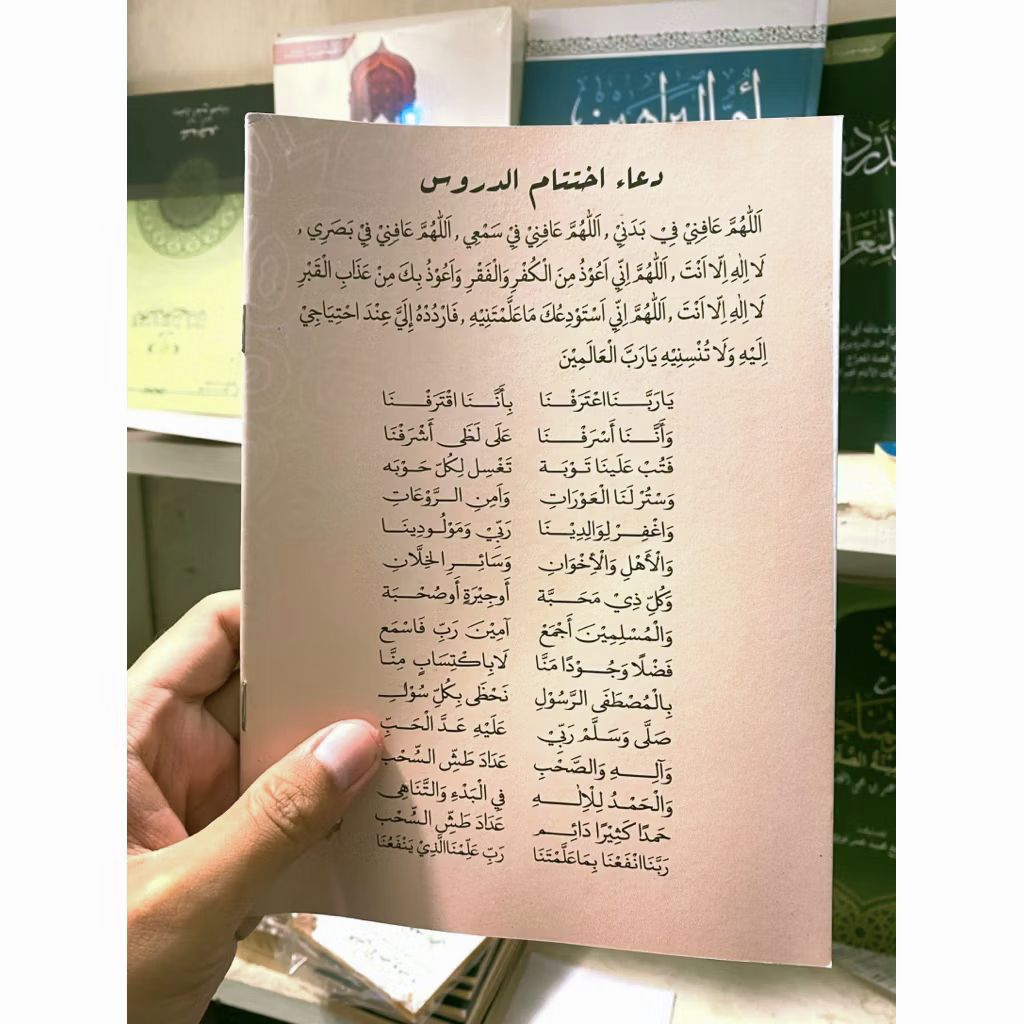 أم البراهين
دعاء اختتام الدروس
اَللّٰهُمَّ عَافِنِيْ فِيْ بَدَنِيْ , اَللّٰهُمَّ عَافِنِيْ فِيْ سَمْعِي , اَللّٰهُمَّ عَافِنِيْ فِيْ بَصَرِي ,
لَا اِلٰهَ اِلَّا اَنْتَ , اَللّٰهُمَّ اِنِّي اَعُوْذُ مِنَ الْكُفْرِ وَالْفَقْرِ وَاَعُوْذُ بِكَ مِنْ عَذَابِ الْقَبْرِ
لَا اِلٰهَ اِلَّا اَنْتَ , اَللّٰهُمَّ اِنِّي اَسْتَوْدِعُكَ مَاعَلَّمْتَنِيْهِ , فَارْدُدْهُ إِلَيَّ عِنْدَ احْتِيَاجِيْ
اِلَيْهِ وَلَا تُنْسِنِيْهِ يَارَبَّ الْعَالَمِيْنَ
يَارَبَّـــنَا اعْتَرَفْـــنَا بِأَنَّـــنَا اقْتَرَفْـــنَا
وَأَنَّـــنَا أَسْرَفْـــنَا عَلَى لَظَى أَشْرَفْنَا
فَتُبْ عَلَينَا تَوْبَـــة تَغْسِل لِكُلّ حَـوْبَه
وَسْتُرْ لَنَا الْعَوْرَاتِ وَاَمِنِ الـــرَّوْعَاتِ
وَاغْفِـــرْ لِوَالِدِيْـــنَا رَبِّيْ وَمَوْلُـودِينَـا
وَالْأَهْلِ وَالْأِخْوَانِ وَسَائِـــرِ الخِلَّانِ
وَكُلِّ ذِيْ مَحَـــبَّة أَوجِيْرَةٍ أَوصُحْـــبَة
وَالْمُسْلِمِيْـنَ أَجْمَعْ آمِيْنَ رَبِّ فَاسْمَع
فَضْلًا وَجُـــوْدًا مَنَّا لَابِاكْتِسَابٍ مِنَّـــا
بِالْمُصْطَفَى الرَّسُوْلِ نَحْظَى بِكُلّ سُوْلـِ
صَلَّى وَسَلَّمْ رَبِّيْ عَلَيْهِ عَـــدَّ الْحَـبِّ
وَآلِـــهِ وَالصَّحْبِ عَدَادَ طَشِّ السُّحْب
وَالْحَمْدُ لِلْاِلٰـــهِ فِي الْبَدْءِ وَالتَّنَاهِي
حَمدًا كَثِيْرًا دَائِـــم عَدَادَ طَشِّ السُّحْب
رَبَّنَاانْفَعْنَا بِمَاعَلَّمْتَنَا رَبِّ عَلِّمْنَاالَّذِيْ يَنْفَعُنَا